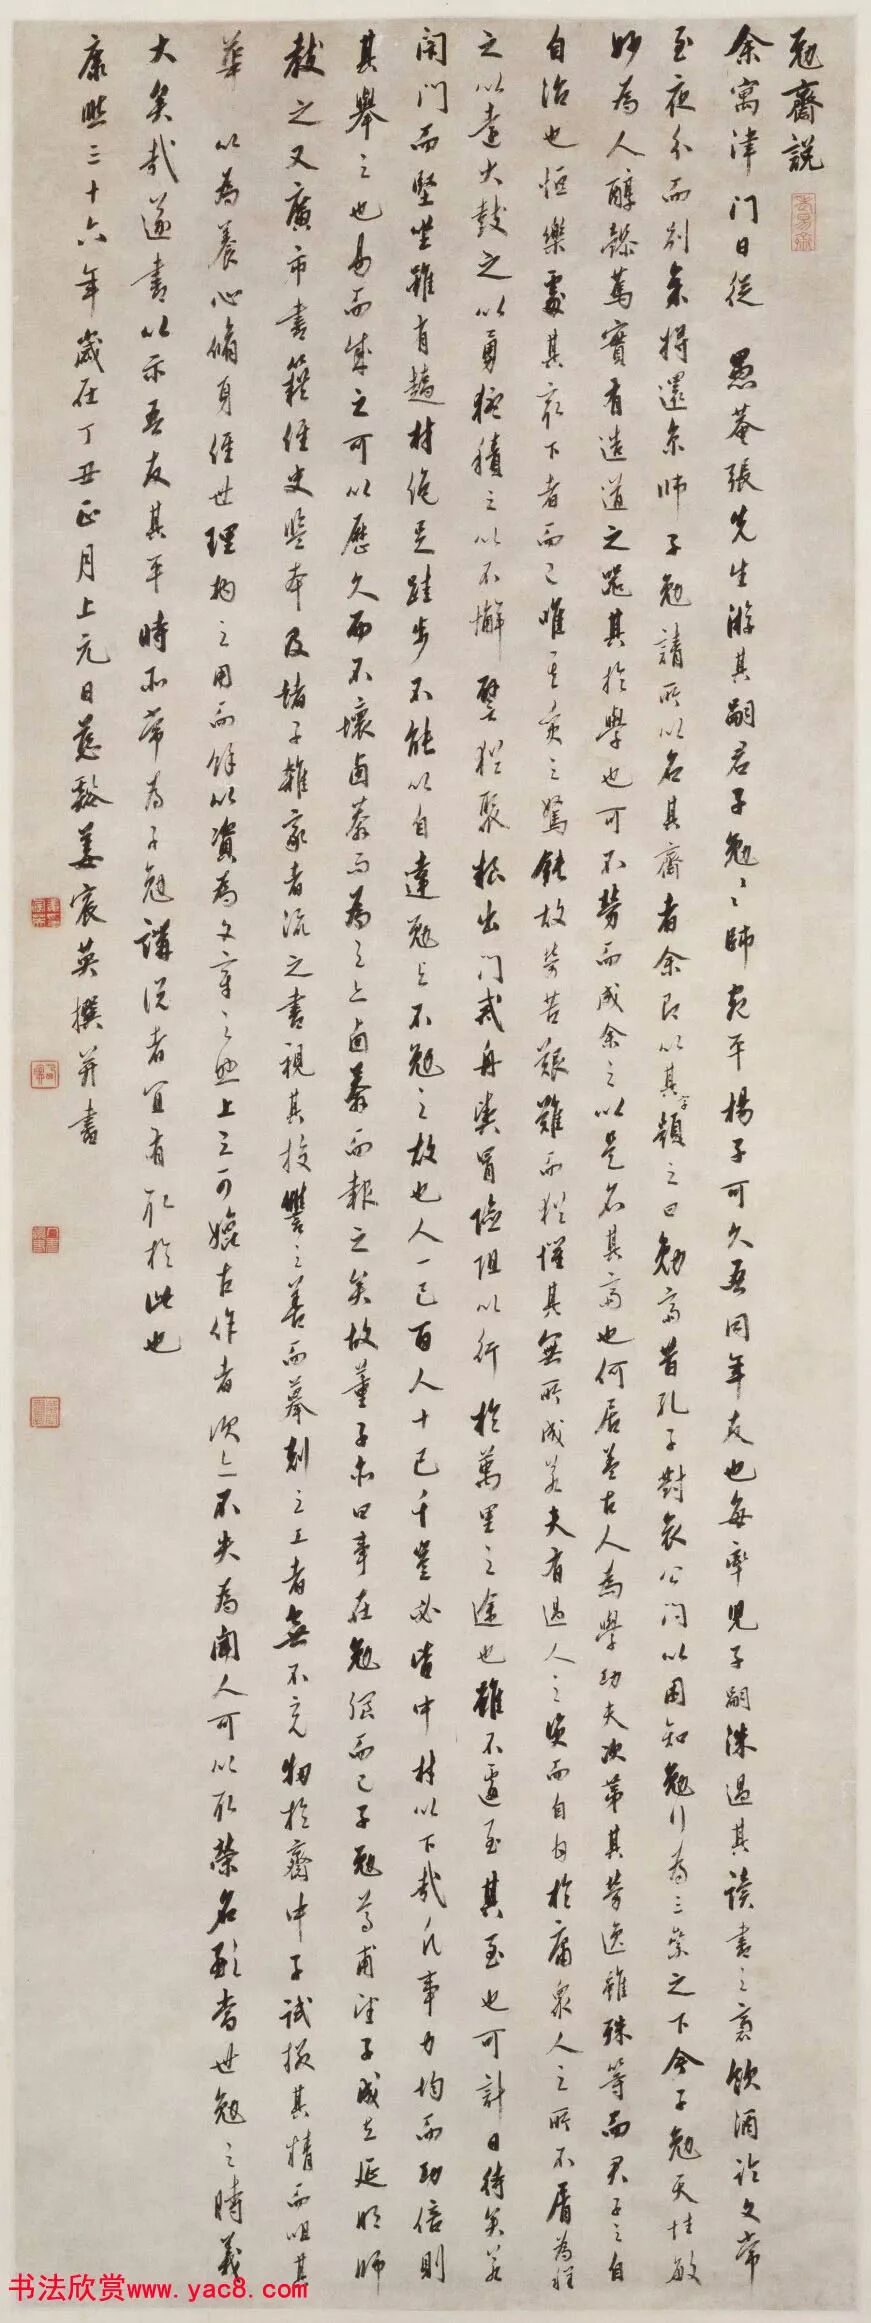 勉齋說
余寓津門日從 愚菴張先生游其嗣君子勉〻師宛平楊子可久吾同年友也每率兒子嗣洙過其讀書之齋飲酒論文常
至夜分而別余將還京師子勉請所以名其齋者余即以其字顏之曰勉齋昔孔子對哀公問以困知勉行為三等之下今子勉天性敏
妙為人醇謹篤實有造道之器其於學也可不勞而成余之以是名其齋也何居蓋古人為學功夫次第其勞逸雖殊等而君子之自
自治也恒樂處其最下者而已唯其資之駑鈍故勞苦艱難而猶懼其無所成若夫有過人之資而自甘於庸衆人之所不屑為程
之以遠大鼓之以勇猛積之以不懈譬猶聚糧出門戒舟輿冒險阻以行於萬里之途也雖不遽至其至也可計日待矣若
閉門而堅坐雖有趫材绝足跬步不能以自達勉與不勉之故也人一己百人十己千豈必皆中材以下哉凡事力均而功倍則
其舉之也易而成之可以歷久而不壞鹵莽而為之亦鹵莽而報之矣故董子亦曰事在勉強而已子勉尊甫望子成立延明師
教之又廣市書籍經史監本及諸子雜家者流之書視其挍讐之善而摹刻之工者無不充牣於齋中子試掇其精而咀其
華以為養心脩身經世理物之用而餘以資為文章之具上之可媲古作者次亦不失為聞人可以取榮名顯當世勉之時義
大矣哉遂書以示吾友其平時所常為子勉講説者宜有取於此也
康熙三十六年歲在丁丑正月上元日慈谿姜宸英撰并書
书法欣赏www.yac8.com